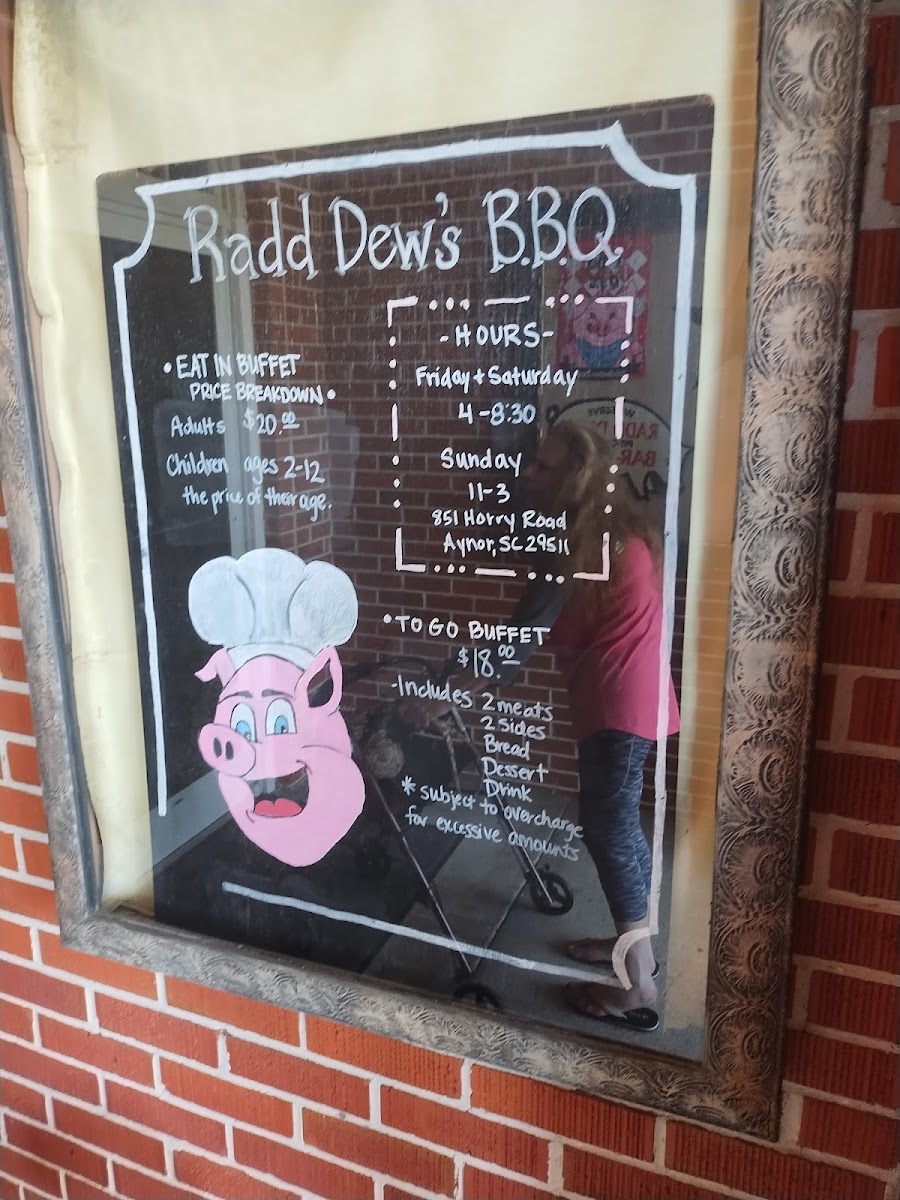 Radd Dew's B.B.Q.
• EAT IN BUFFET
PRICE BREAKDOWN •
Adults $20.00
Children ages 2-12
the price of their age.
-HOURS-
Friday + Saturday
4-8:30
Sunday
11-3
851 Horry Road
Aynor, SC 29511
• TO GO BUFFET
$18.00
-Includes 2 meats
2 sides
Bread
Dessert
Drink
* subject to overcharge
for excessive amounts